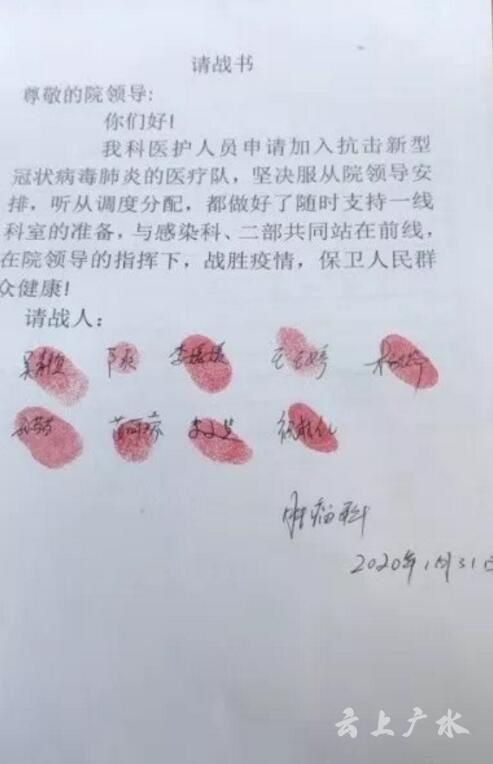 请战书
尊敬的院领导:
你们好!
我科医护人员申请加入抗击新型
冠状病毒肺炎的医疗队，坚决服从院领导安
排，听从调度分配，都做好了随时支持一线
科室的准备，与感染科、二部共同站在前线，
在院领导的指挥下，战胜疫情，保卫人民群
众健康!
请战人：
肿瘤科
2020年1月31日
云上广水